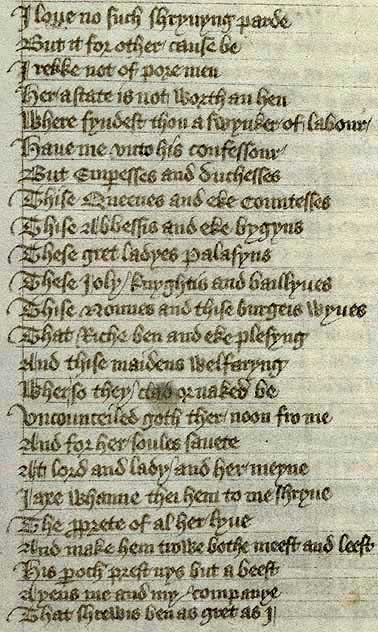 I loue no such shryuyng parde
But it for other cause be
I rekke not of pore men
Her astate is not worth an hen
Where fyndest thou a swynker of labour
Haue me vnto his confessour
But Emperesses and duchesses
Thise Queenes and eke Countesses
Thise Abbessis and eke bygyns
These gret ladyes palasyns
These Joly knyghtis and baillyues
Thise Nonnes and thise burgeis wyues
That Riche ben and eke plesyng
And thise maidens welfaryng
Wherso they clad or naked be
Vncounceiled goth ther noon fro me
And for her soules sauete
At lord and lady and her meyne
I axe whanne thei hem to me shryue
The pprete of al her lyue
And make hem trowe bothe meest and leest
His poch prest nys but a beest
Ayens me and my companye
That shrewis ben as gret as I